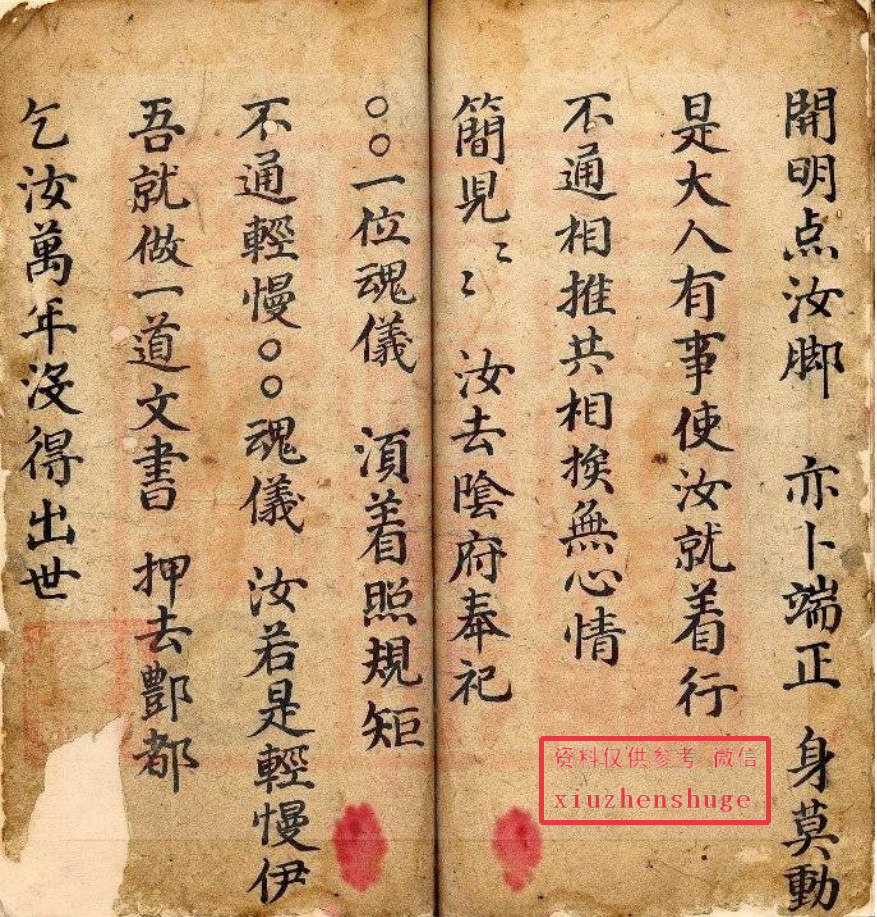 開明点汝脚 亦卜端正 身莫動
是大人有事使汝就着行
不通相推共相挨無心情
簡児〻〻 汝去陰府奉祀
○○一位魂儀 須着照規矩
不通輕慢○○魂儀 汝若是輕慢伊
吾就做一道文書 押去酆都
乞汝萬年没得出世
资料仅供参考 微信
xiuzhenshuge